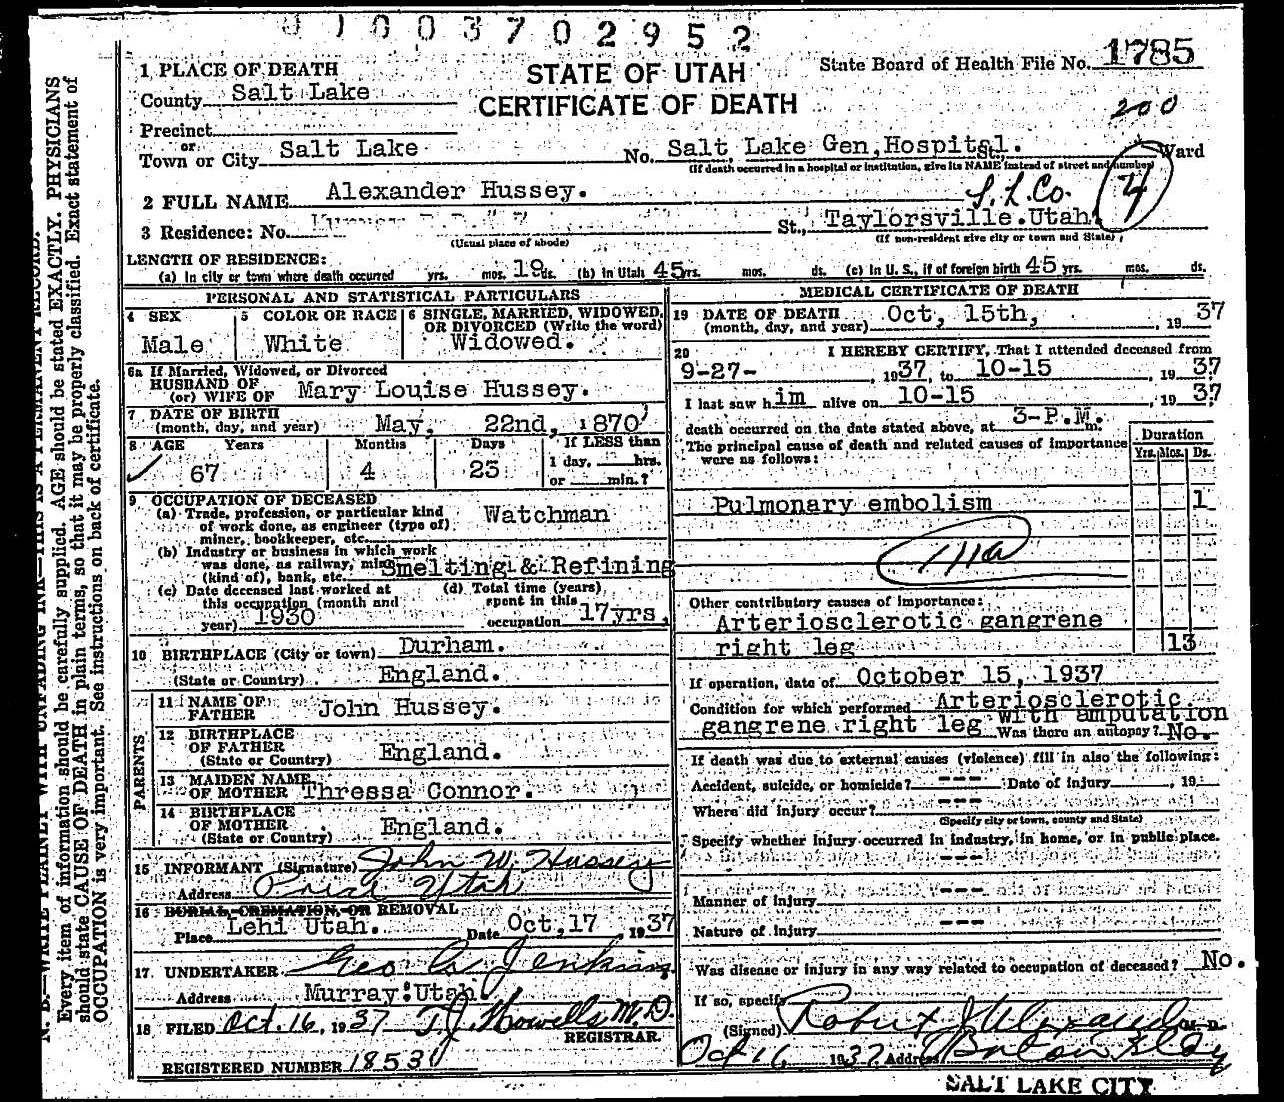 01003702952
1 PLACE OF DEATH
STATE OF UTAH
State Board of Health File No. 1785
County Salt Lake
CERTIFICATE OF DEATH
200
Precinct
or
Town or City Salt Lake No. Salt Lake Gen, Hospital. St., Ward
(If death occurred in a hospital or institution, give its NAME instead of street and number)
2 FULL NAME Alexander Hussey.
S.L.Co. 4
3 Residence: No. St., Taylorsville.Utah.
(Usual place of abode) (If non-resident give city or town and State)
LENGTH OF RESIDENCE:
(a) In city or town where death occurred yrs. mos. 19 ds. (b) In Utah 45 yrs. mos. ds. (c) In U. S., if of foreign birth 45 yrs. mos. ds.
PERSONAL AND STATISTICAL PARTICULARS
4 SEX
Male
5 COLOR OR RACE
White
6 SINGLE, MARRIED, WIDOWED,
OR DIVORCED (Write the word)
Widowed.
6a If Married, Widowed, or Divorced
HUSBAND OF
(or) WIFE OF Mary Louise Hussey.
7 DATE OF BIRTH
(month, day, and year) May, 22nd, 1870
8 AGE Years Months Days If LESS than
67 4 23 1 day, hrs.
or min.?
9 OCCUPATION OF DECEASED
(a) Trade, profession, or particular kind
of work done, as engineer (type of)
miner, bookkeeper, etc. Watchman
(b) Industry or business in which work
was done, as railway, mine
(kind of), bank, etc. Smelting & Refining
(c) Date deceased last worked at
this occupation (month and
year) 1930
(d) Total time (years)
spent in this
occupation 17yrs.
10 BIRTHPLACE (City or town) Durham.
(State or Country) England.
PARENTS
11 NAME OF
FATHER John Hussey.
12 BIRTHPLACE
OF FATHER
(State or Country) England.
13 MAIDEN NAME
OF MOTHER Thressa Connor.
14 BIRTHPLACE
OF MOTHER
(State or Country) England.
15 INFORMANT (Signature) John W. Hussey
Address Price Utah
16 BURIAL, CREMATION, OR REMOVAL
Place Lehi Utah. Date Oct,17 1937
17. UNDERTAKER Geo A Jenkins
Address Murray.Utah.
18 FILED Oct. 16, 1937 T.J. Howells M.D.
REGISTRAR.
REGISTERED NUMBER 1853
MEDICAL CERTIFICATE OF DEATH
19 DATE OF DEATH
(month, day, and year) Oct, 15th, , 1937
20 I HEREBY CERTIFY, That I attended deceased from
9-27- , 1937, to 10-15 , 1937
I last saw him alive on 10-15 , 1937
death occurred on the date stated above, at 3-P.M. m.
The principal cause of death and related causes of importance
were as follows:
Duration
Yrs. Mos. Ds.
Pulmonary embolism 1
Other contributory causes of importance:
Arteriosclerotic gangrene
right leg 13
If operation, date of October 15, 1937
Condition for which performed Arteriosclerotic
gangrene right leg with amputation
Was there an autopsy? No.
If death was due to external causes (violence) fill in also the following:
Accident, suicide, or homicide? --- Date of injury , 19
Where did injury occur? ---
(Specify city or town, county and State)
Specify whether injury occurred in industry, in home, or in public place.
---
Manner of injury ---
Nature of injury ---
Was disease or injury in any way related to occupation of deceased? No.
If so, specify
(Signed) Robert J Alexander M. D.
Oct 16 1937 Address
SALT LAKE CITY
Every item of information should be carefully supplied. AGE should be stated EXACTLY. PHYSICIANS
should state CAUSE OF DEATH in plain terms, so that it may be properly classified. Exact statement of
OCCUPATION is very important. See instructions on back of certificate.